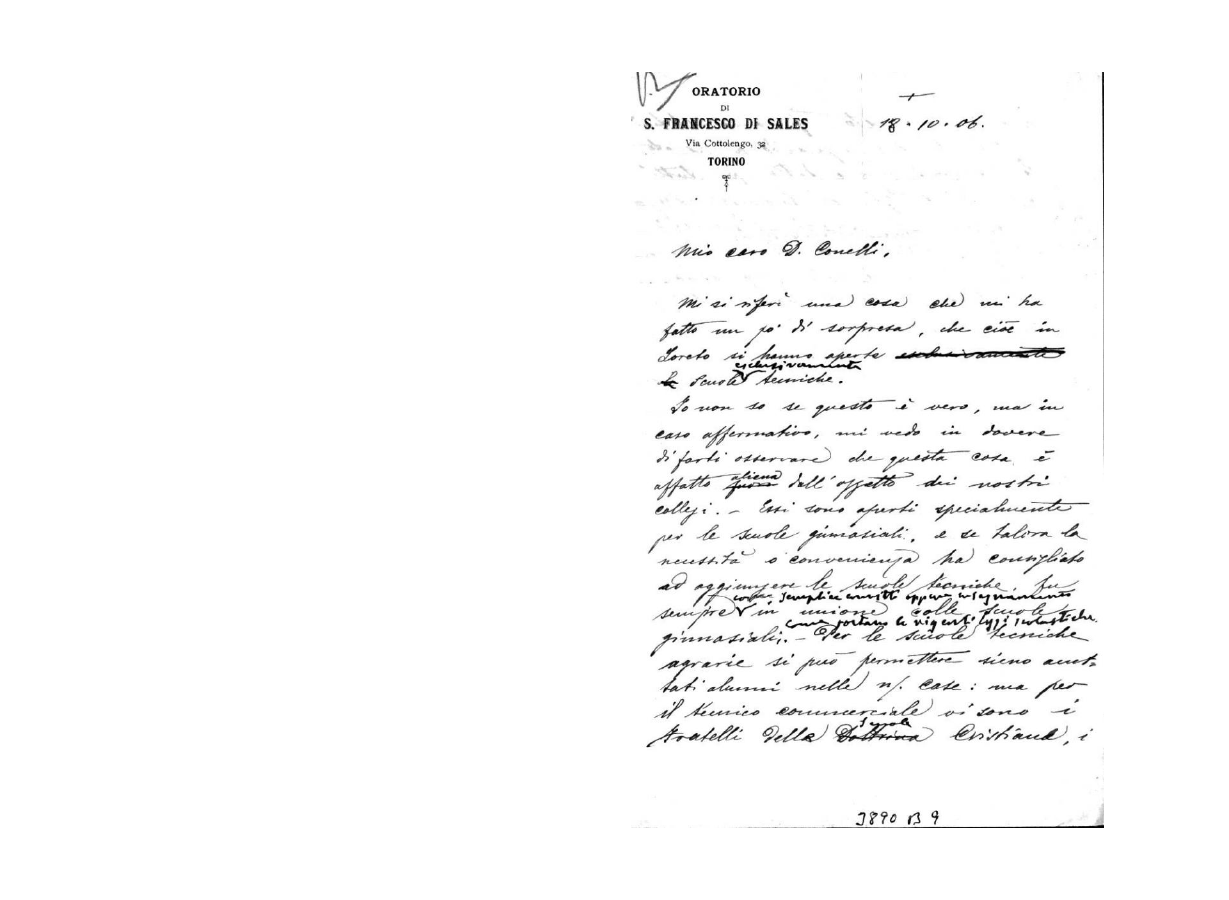 ORATORIO
DI
S. FRANCESCO DI SALES
Via Cottolengo, 32
TORINO
18 . 10 . 06.
Mio caro D. Conelli,
Mi si riferì una cosa che mi ha
fatto un po' di sorpresa, che cioè in
Loreto si hanno aperte esclusivamente
esclusivamente
le Scuole tecniche.
Io non so se questo è vero, ma in
caso affermativo, mi vedo in dovere
di farti osservare che questa cosa è
aliena
affatto fuori dall'oggetto dei nostri
collegi. - Essi sono aperti specialmente
per le scuole ginnasiali, e se talora la
necessità o convenienza ha consigliato
ad aggiungere le scuole tecniche, fu
come semplici convitti oppure insegnamento
sempre in unione colle scuole
come portano le vigenti leggi scolastiche
ginnasiali; - Per le scuole tecniche
agrarie si può permettere sieno accet-
tati alunni nelle n/. case: ma per
il tecnico commerciale vi sono i
Scuole
Fratelli della Dottrina Cristiana, i
3890 B 9